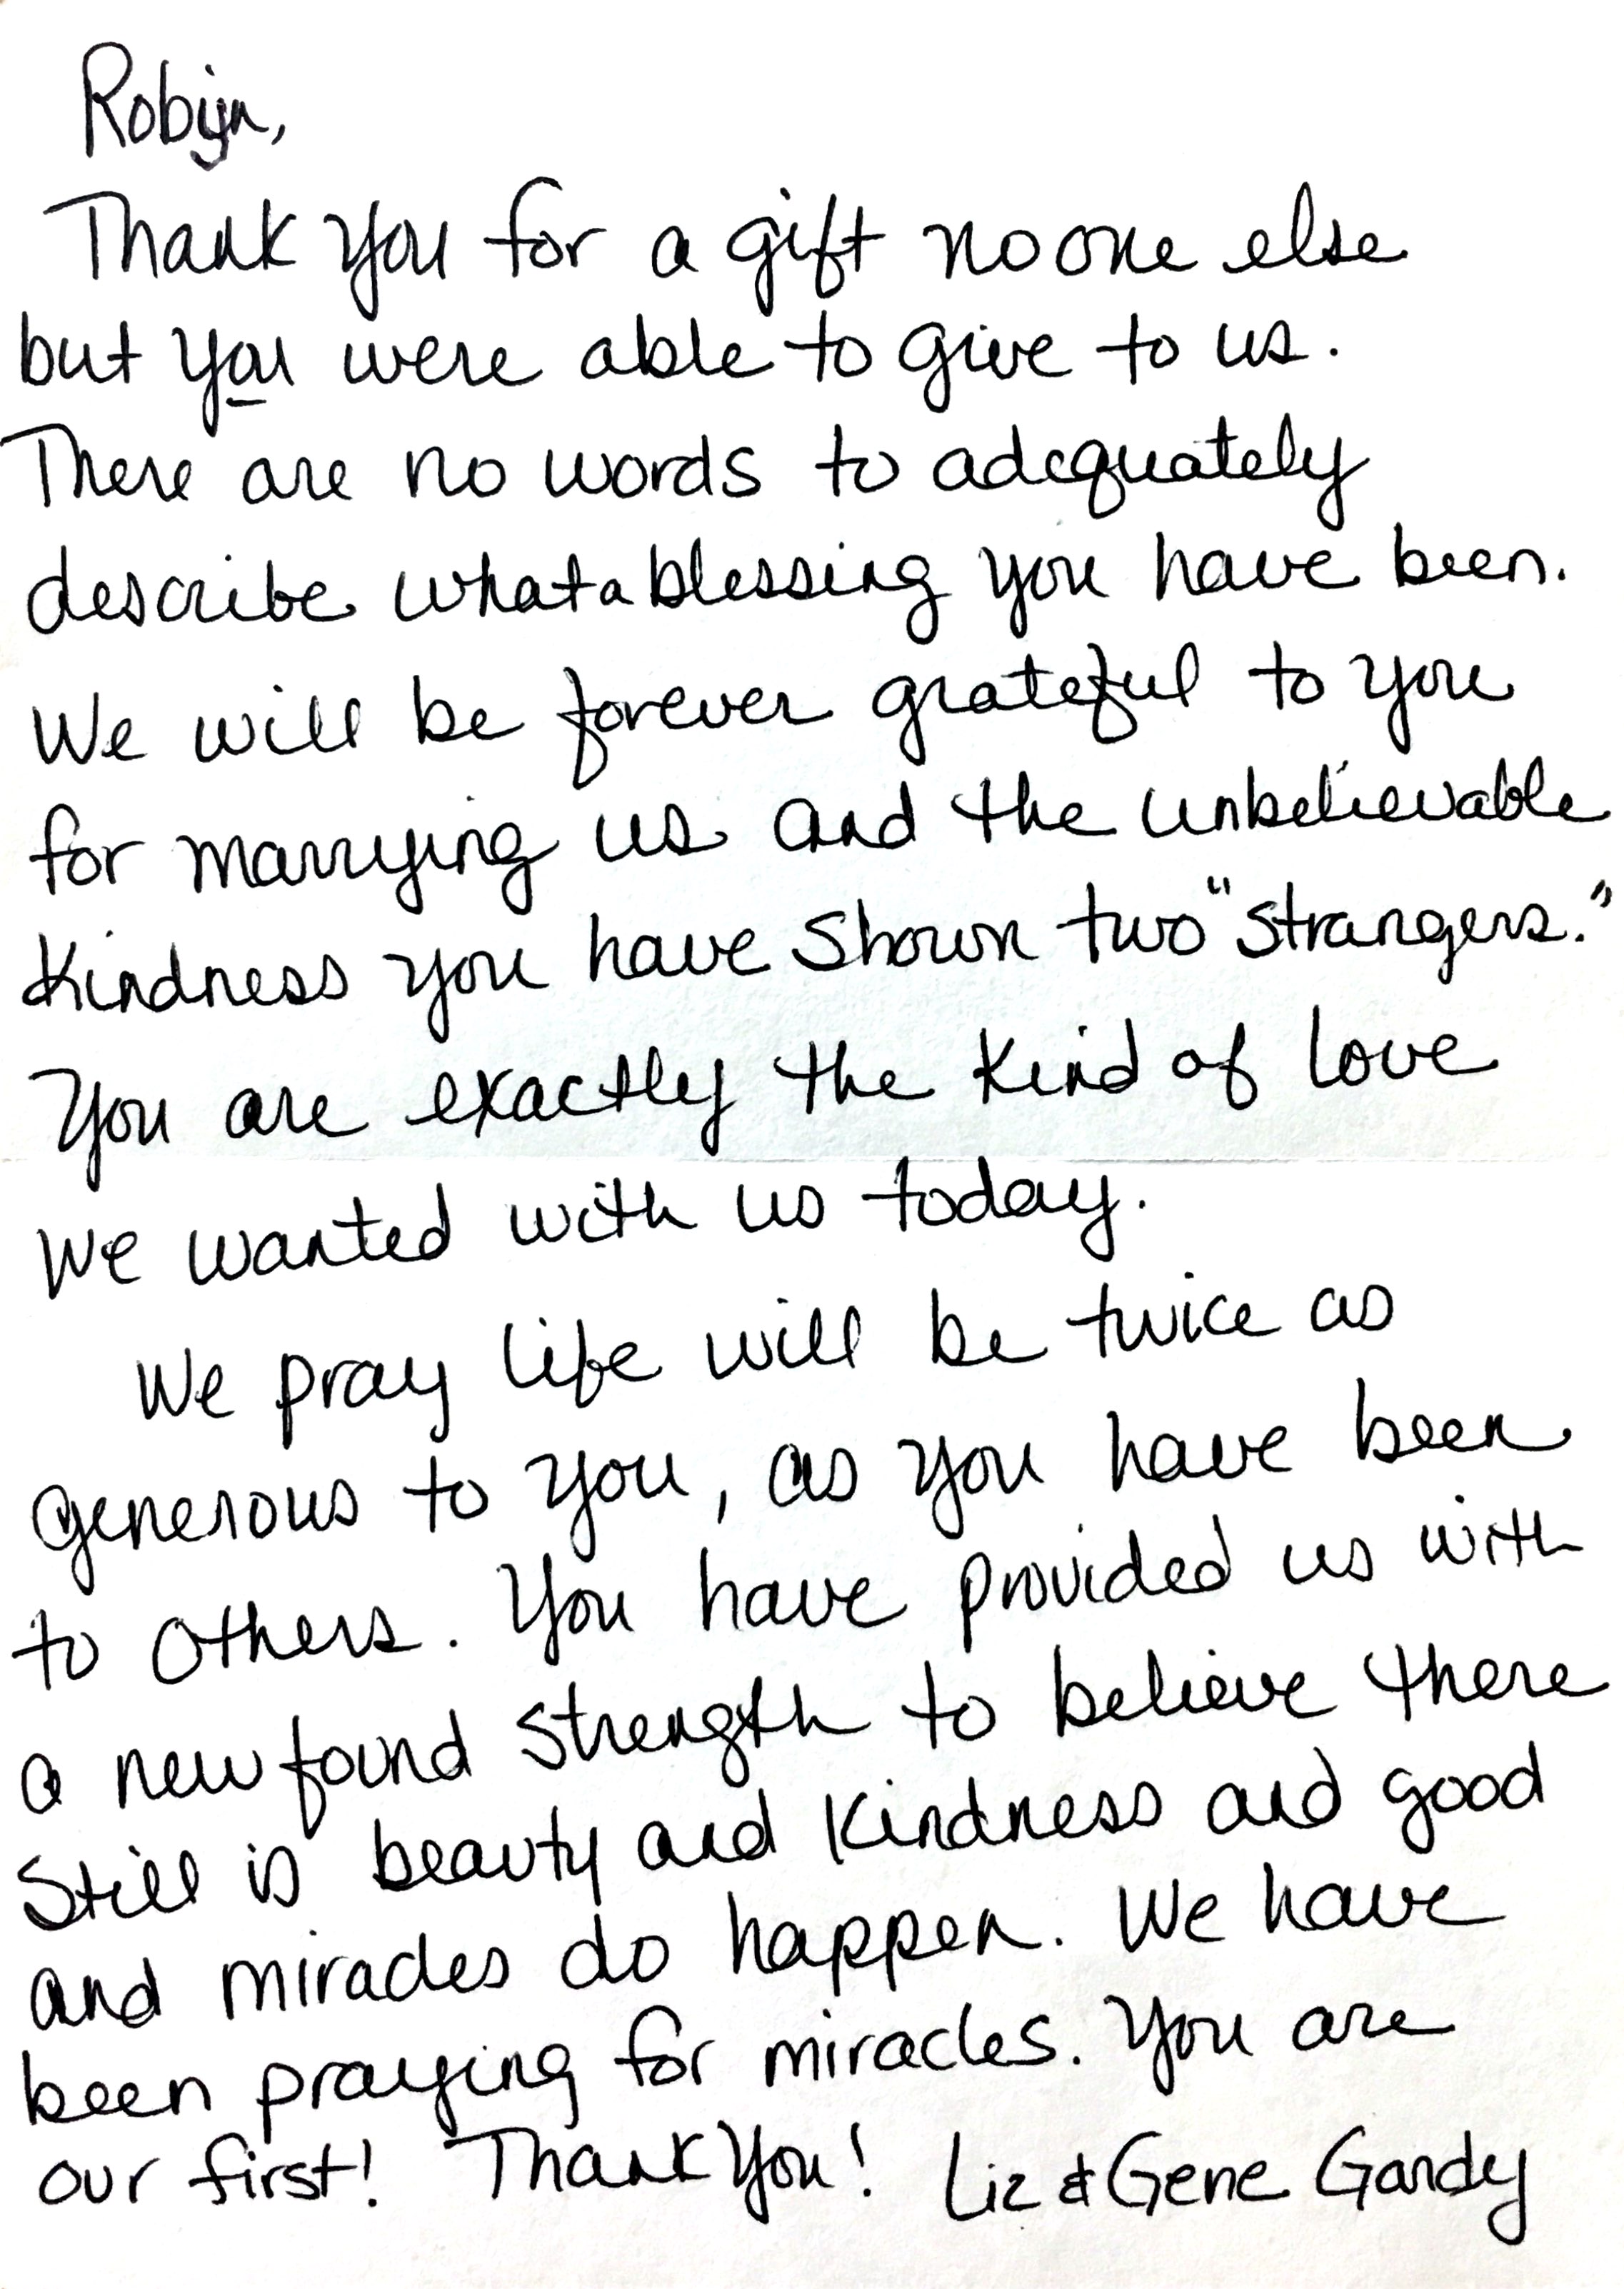 Robyn,
Thank you for a gift no one else
but you were able to give to us.
There are no words to adequately
describe what a blessing you have been.
We will be forever grateful to you
for marrying us and the unbelievable
kindness you have shown two "strangers."
You are exactly the kind of love
we wanted with us today.
We pray life will be twice as
generous to you, as you have been
to others. You have provided us with
a newfound strength to believe there
still is beauty and kindness and good
and miracles do happen. We have
been praying for miracles. You are
our first! Thank You! Liz & Gene Gandy